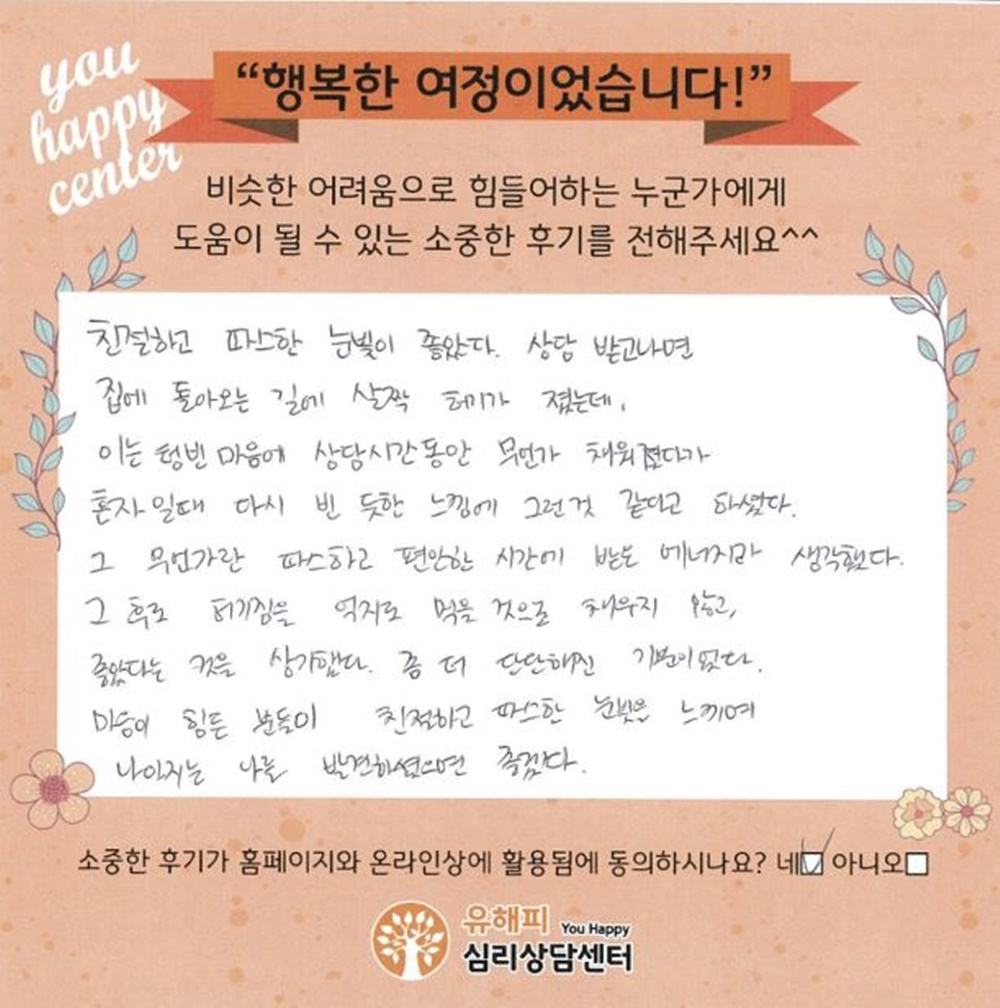 you
happy
center
“행복한 여정이었습니다!”
비슷한 어려움으로 힘들어하는 누군가에게
도움이 될 수 있는 소중한 후기를 전해주세요^^
친절하고 따스한 눈빛이 좋았다. 상담 받고나면
집에 돌아오는 길에 살짝 허기가 졌는데,
이는 텅빈 마음에 상담시간동안 무언가 채워졌다가
혼자일때 다시 빈 듯한 느낌에 그런것 같다고 하셨다.
그 무언가란 따스하고 편안한 시간에 받는 에너지라 생각했다.
그 후로 허기짐을 억지로 먹을 것으로 채우지 않고,
좋았다는 것을 상기했다. 좀 더 단단해진 기분이었다.
마음이 힘든 분들이 친절하고 따스한 눈빛을 느끼며
나아지는 나를 발견하셨으면 좋겠다.
소중한 후기가 홈페이지와 온라인상에 활용됨에 동의하시나요? 네☑ 아니오☐
유해피 You Happy
심리상담센터